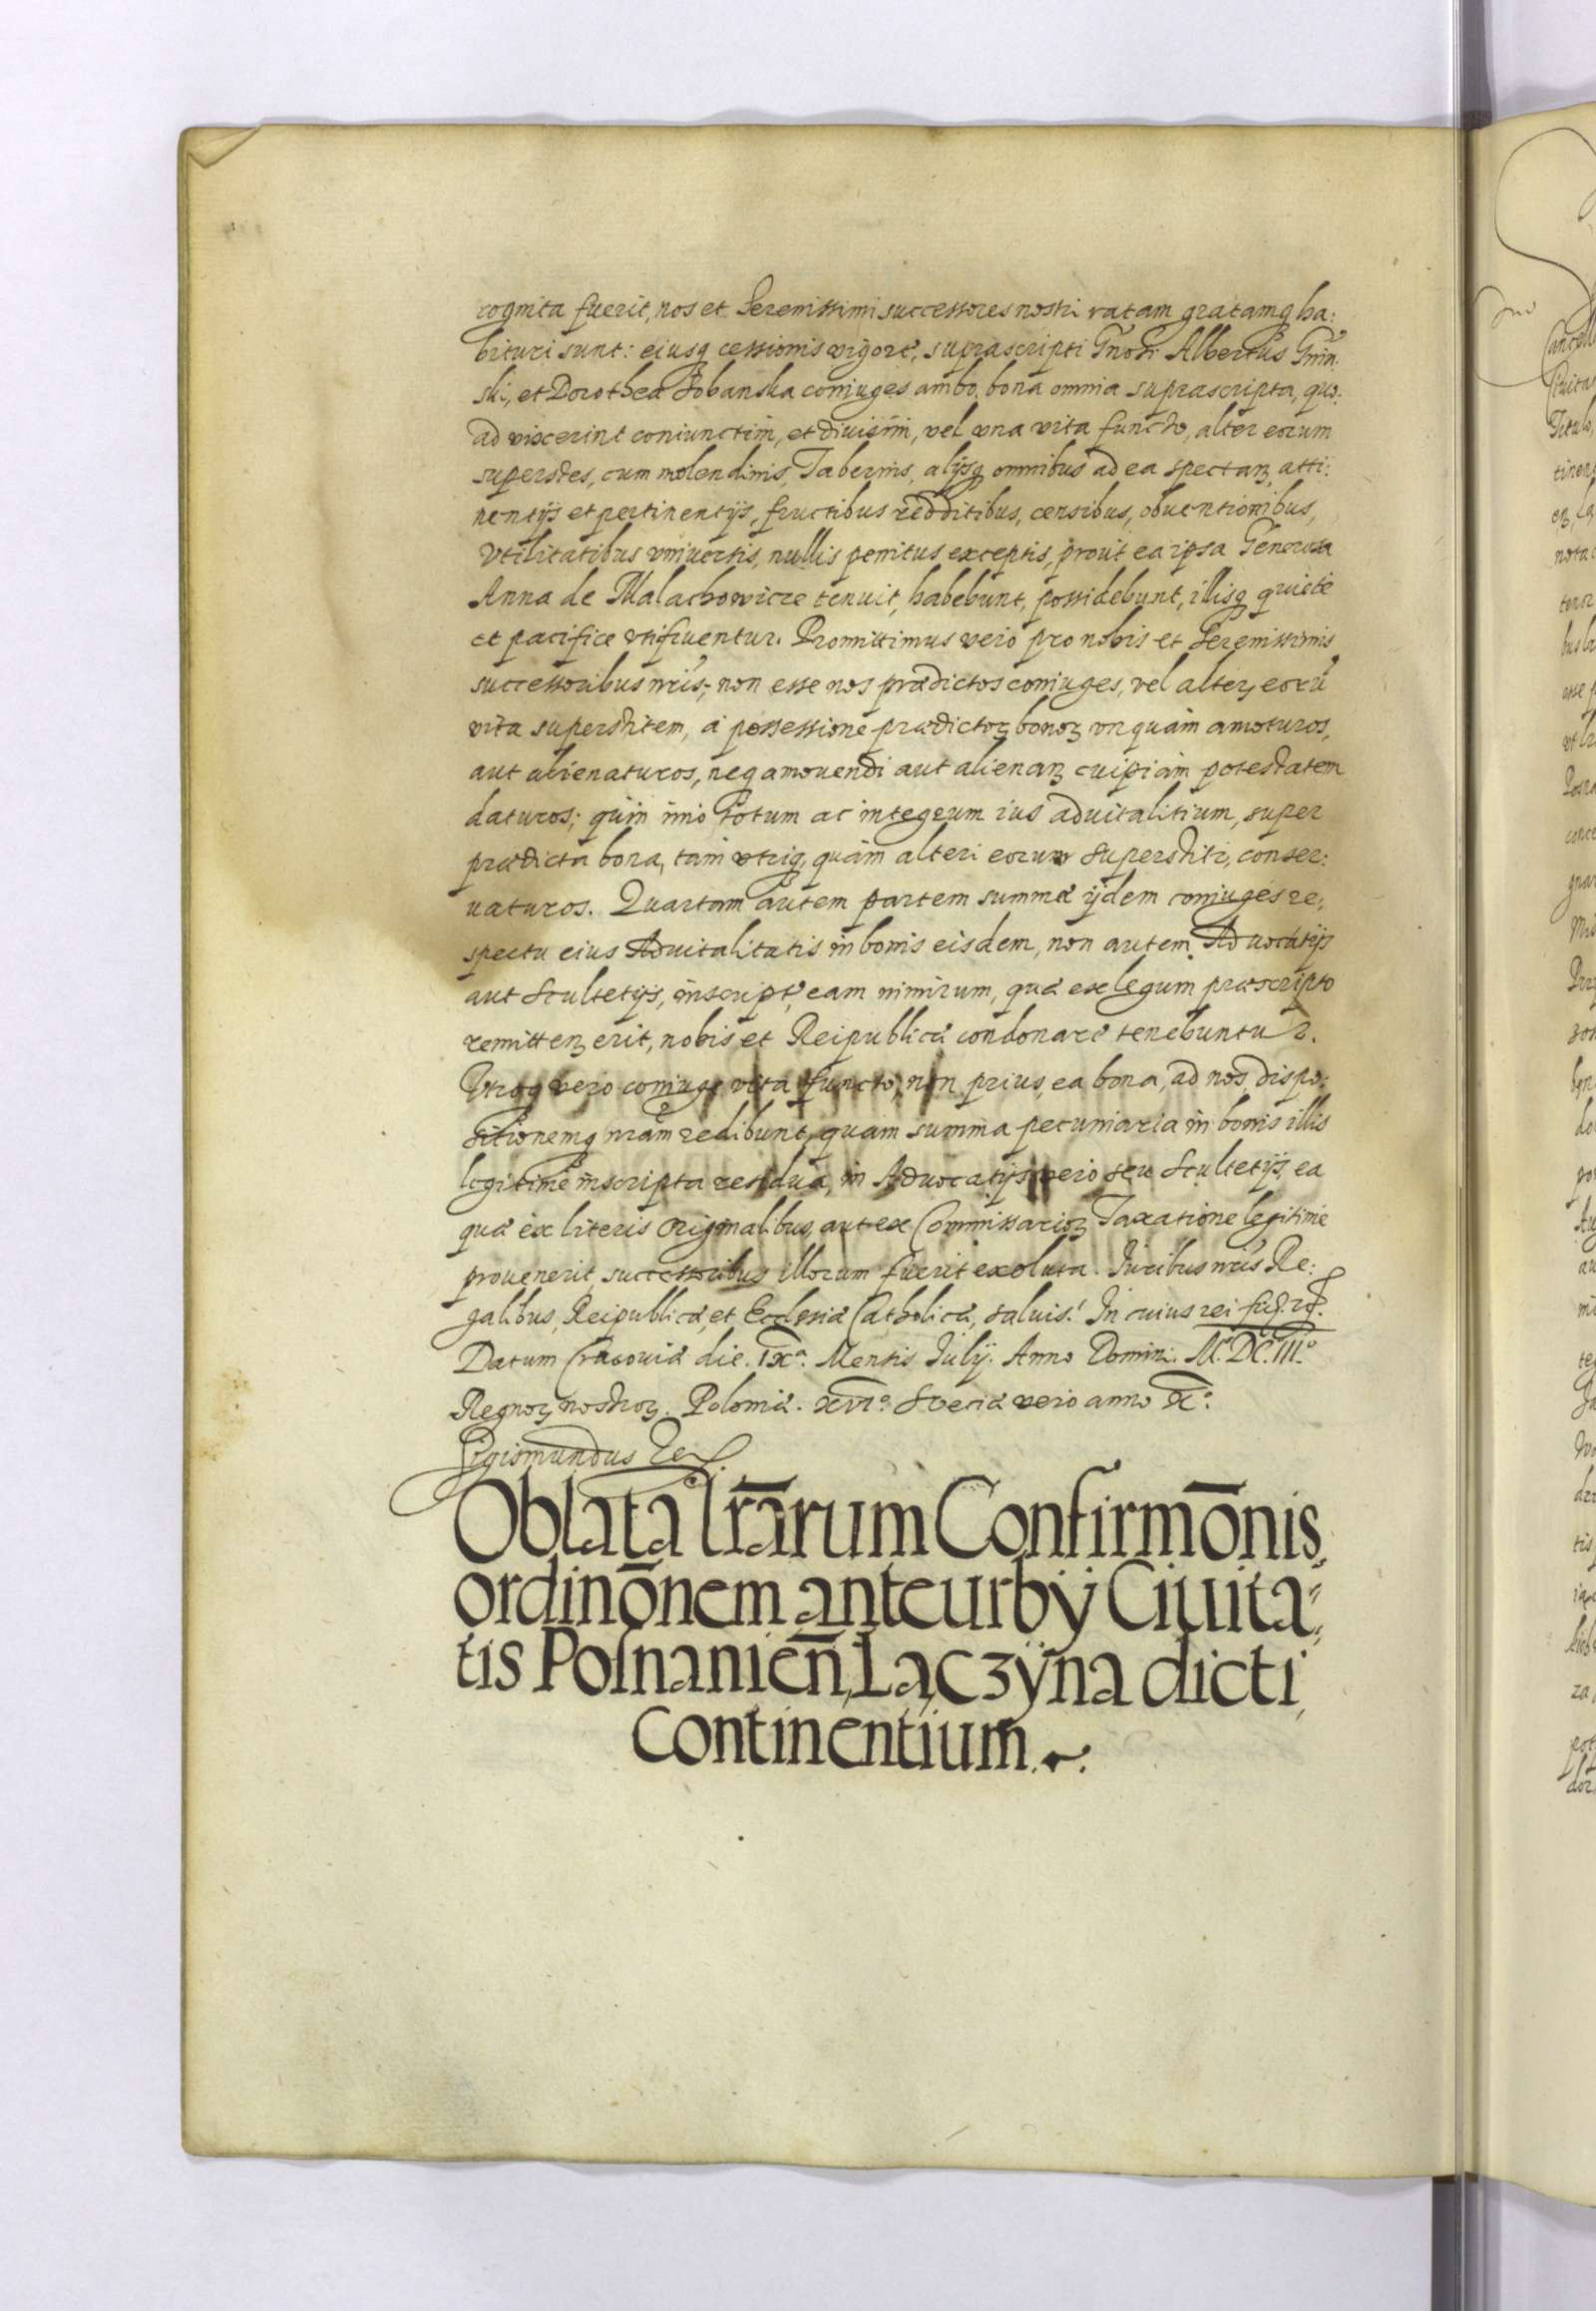 cognita fuerit, nos et Serenissimi successores nostri ratam gratamq ha:
bituri sunt: eiusq cessionis vigore, suprascripti Gnosi Albertus Gnin:
ski, et Dorothea Sobanska coniuges ambo, bona omnia suprascripta, quo:
ad vixerint coniunctim, et diuisim, vel vna vita functo, alter eorum
superstes, cum molendinis, Tabernis, alijsq omnibus ad ea spectanꝫ, atti:
nentijs et pertinentijs, fructibus redditibus, censibus, obuentionibus,
Vtilitatibus vniuersis, nullis penitus exceptis, prout ea ipsa Generosa
Anna de Malachowicze tenuit, habebunt, possidebunt, illisq quiete
et pacifice vtifruentur. Promittimus vero pro nobis et Serenissimis
successoribus nris, non esse nos prædictos coniuges, vel alteꝝ eorū
vita superstitem, a possessione prædictoꝝ bonoꝝ vnquam amoturos,
aut alienaturos, neq amouendi aut alienanꝫ cuipiam potestatem
daturos; quin imo totum ac integrum ius aduitalitium, super
prædicta bona, tam vtriq, quam alteri eorum superstiti, conser:
uaturos. Quartam autem partem summæ ijdem coniuges re:
spectu eius Aduitalitatis in bonis eisdem, non autem Aduocatijs
aut Scultetijs, inscriptæ, eam nimirum, quæ ex legum præscripto
remittenꝫ erit, nobis et Reipublicæ condonare tenebuntur.
Vtroq vero coniuge vita functo, non prius, ea bona, ad nos, dispo:
sitionemq nram redibunt, quam summa pecuniaria in bonis illis
legitime inscripta residua, in Aduocatijs vero seu Scultetijs, ea
quæ ex literis originalibus, aut ex Commissarioꝝ Taxatione legitime
prouenerit, successoribus illorum fuerit exoluta. Iuribus nris Re:
galibus, Reipublicæ, et Ecclesiæ Catholicæ, saluis. In cuius rei
Datum Cracouiæ die. IXa. Mensis Iulij. Anno Domini. M. DC. IIIo.
Regnoꝝ nostroꝝ. Poloniæ. XVIo. Sveciæ vero anno Xo.
Sigismundus Rex.
Oblata lrārum Confirmōnis,
ordinōnem anteurbÿ Ciuita:
tis Posnanien̄, Laczÿna dicti,
Continentium.